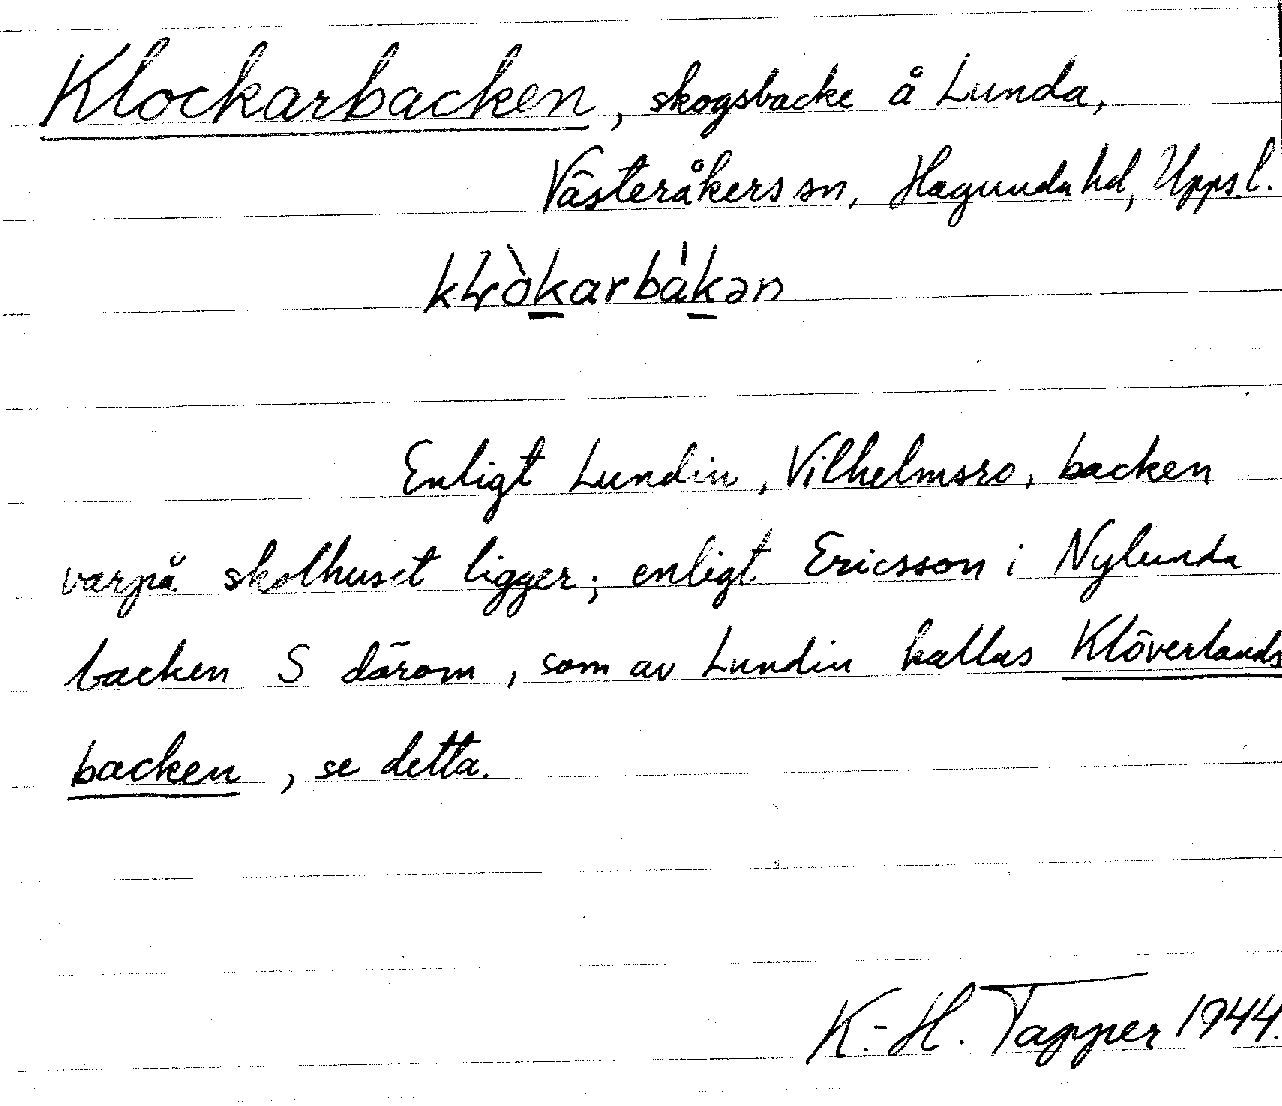 Klockarbacken, skogsbacke å Lunda,
Västeråkers sn, Hagunda hd, Uppsl.
kɬòkarbàkən
Enligt Lundin, Vilhelmsro, backen
varpå skolhuset ligger; enligt Ericsson i Nylunda
backen S därom, som av Lundin kallas Klöverlands
backen, se detta.
K.-H. Tapper 1944.